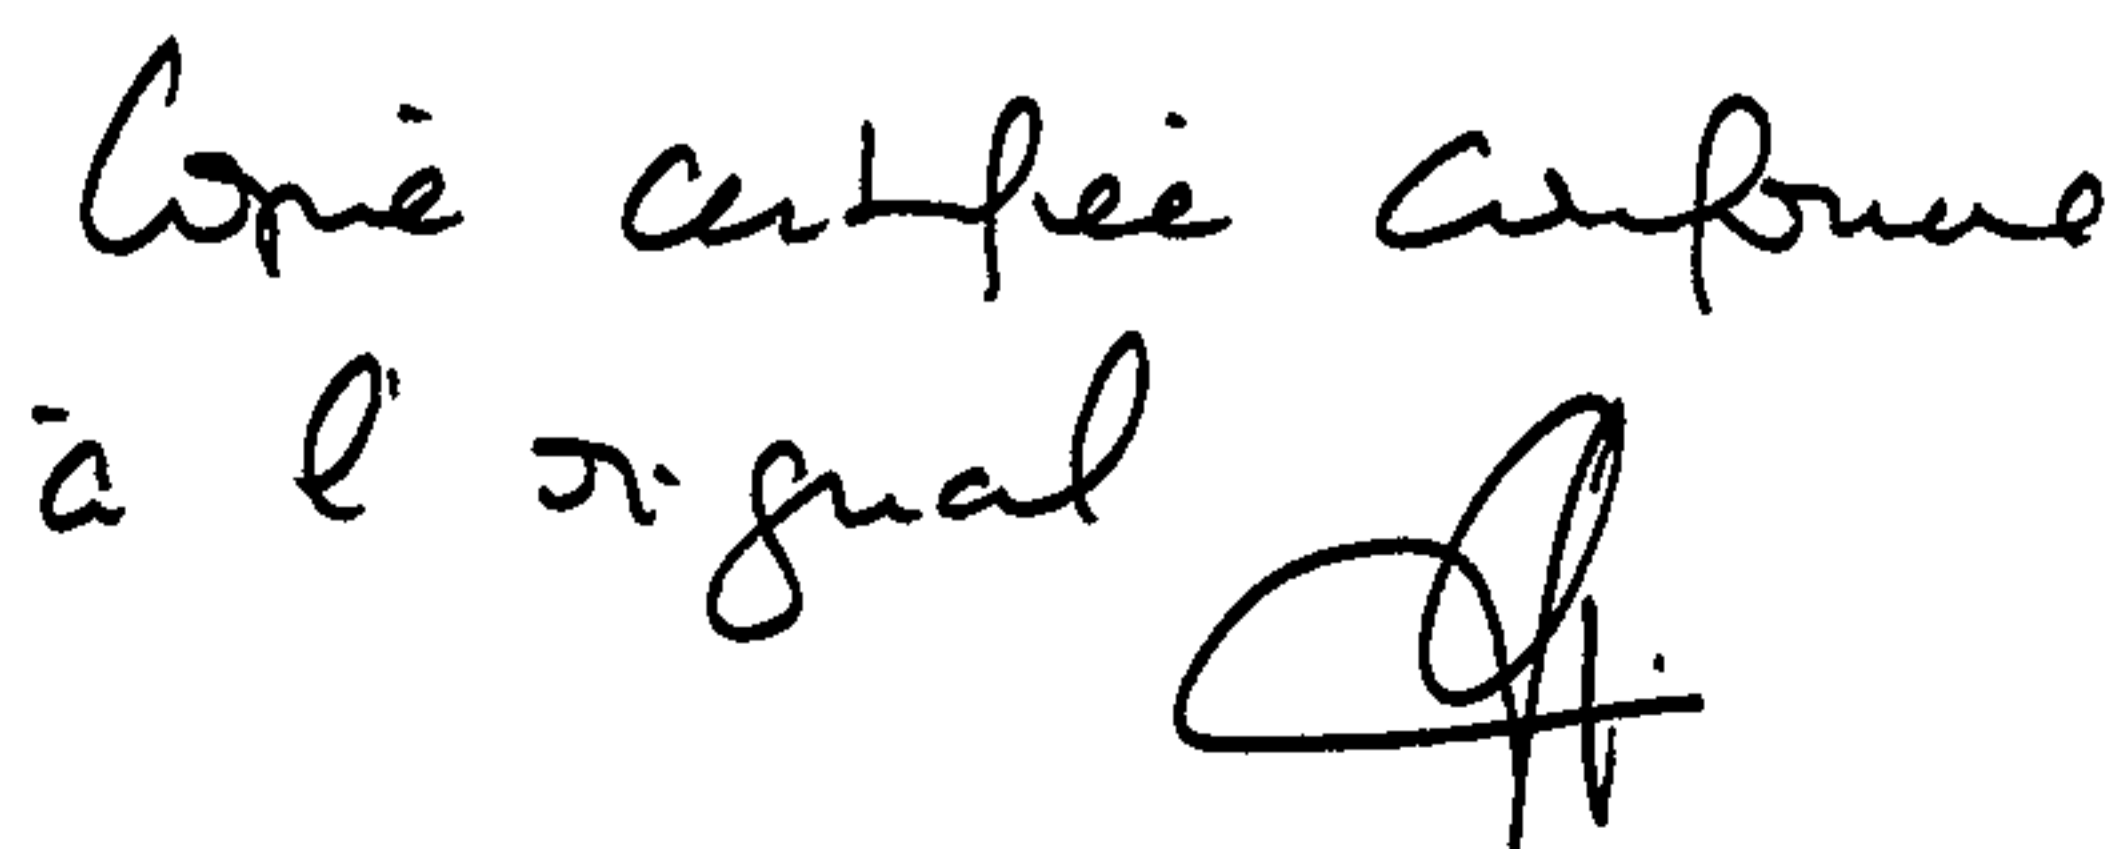 Copie certifiée conforme
à l'original